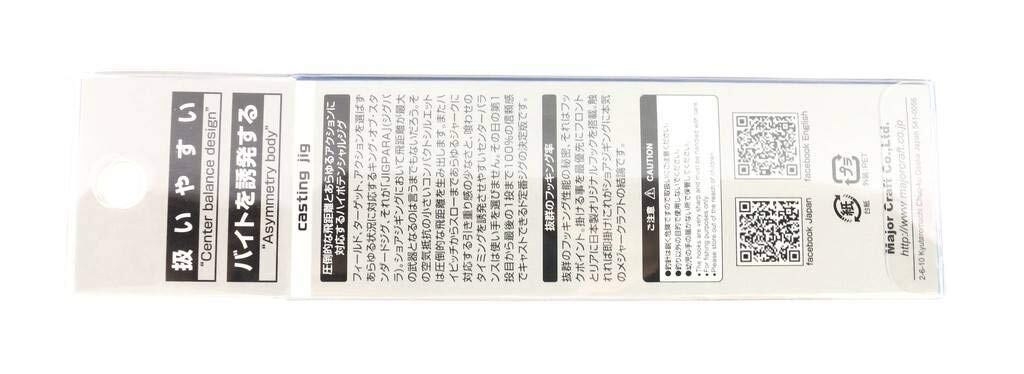 扱いやすい
"Center balance design"
バイトを誘発する
"Asymmetry body"
casting jig
圧倒的な飛距離とあらゆるアクションに
対応するハイポテンシャルジグ
フィールド、ターゲット、アクションを選ばず
あらゆる状況に対応するキング・オブ・スタ
ンダードジグ、それが「JIGPARA」(ジグパ
ラ)。ショアジギングにおいて飛距離が最大
の武器となるのは言うまでもないだろう。そ
の空気抵抗の小さいコンパクトシルエット
は圧倒的な飛距離を生み出します。またハ
イピッチからスローまであらゆるジャークに
対応する引き重り感の少なさと、喰わせの
タイミングを誘発させやすいセンターバラ
ンスは使い手を選びません。その日の第1
投目から最後の1投まで100%の信頼感
でキャストできるド定番ジグの決定版です。
抜群のフッキング率
抜群のフッキング性能の秘密、それはフッ
クポイント、掛ける事を最優先にフロント
とリアに日本製オリジナルフックを搭載。触
れれば即掛け!これがショアジギングに本気
のメジャークラフトの結論です。
ご注意 CAUTION
●釣針は鋭く危険ですので取扱いにご注意ください。
●釣り以外の目的で使用しないでください。
●幼児の手の届かない所で保管ください。
●The hooks are very sharp and must be handled with care.
●For fishing purposes only.
●Please store out of the reach of children.
facebook Japan
facebook English
紙
台紙
プラ
外装:PET
Major Craft Co.,Ltd.
http://www.majorcraft.co.jp